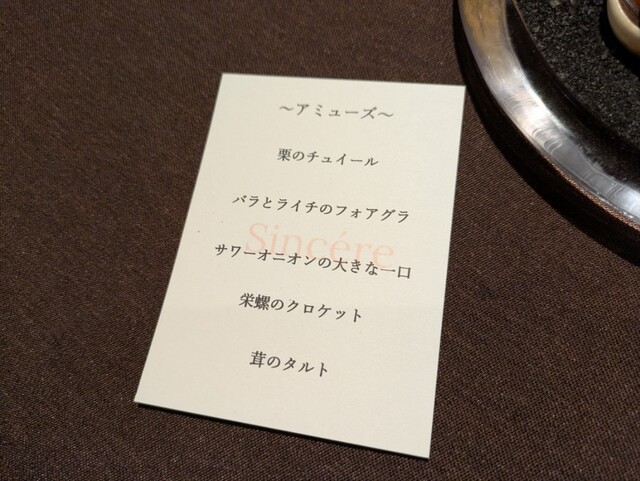 ～アミューズ～
栗のチュイール
バラとライチのフォアグラ
Sincére
サワーオニオンの大きな一口
栄螺のクロケット
茸のタルト